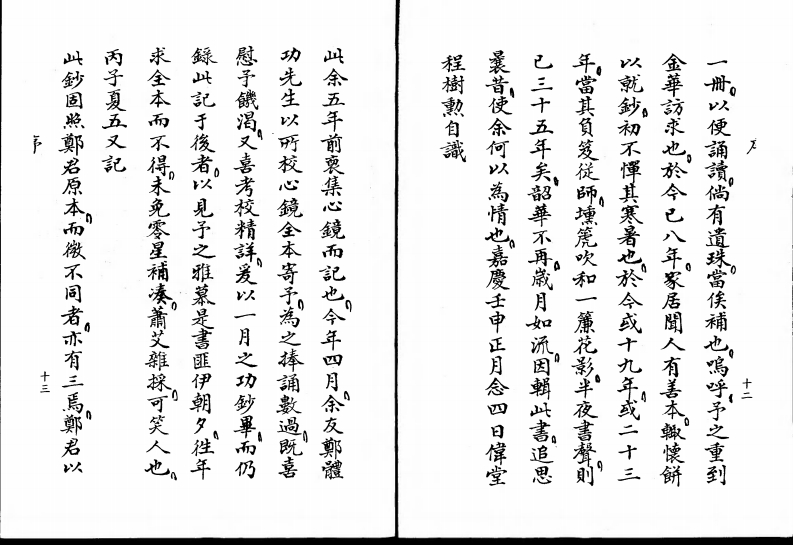 序
一冊以便誦讀倘有遺珠當俟補也嗚呼予之重到
金華訪求也於今已八年冢居聞人有善本輙懷餅
以就鈔初不憚其寒暑也於今或十九年或二十三
年當其負笈從師壎箎吹和一簾花影半夜書聲則
已三十五年矣韶華不再歲月如流因輯此書追思
曩昔使余何以為情也嘉慶壬申正月念四日偉堂
程樹勲自識
十二
此余五年前裒集心鏡而記也今年四月余友鄭體
功先生以所校心鏡全本寄予為之捧誦數過既喜
慰予饑渴又喜考校精詳爰以一月之功鈔畢而仍
錄此記于後者以見予之雅慕是書匪伊朝夕徃年
求全本而不得未免零星補湊蕭艾雜採可笑人也
丙子夏五又記
此鈔固照鄭君原本而微不同者亦有三焉鄭君以
序
十三